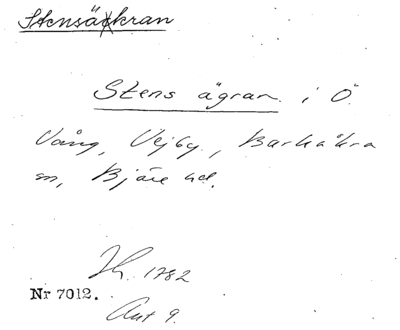 Stensäckran
Stens ägran i Ö.
Vång, Vejby, Barkåkra
sn, Bjäre hd.
Jh. 1782
Nr 7012.
Akt 9.